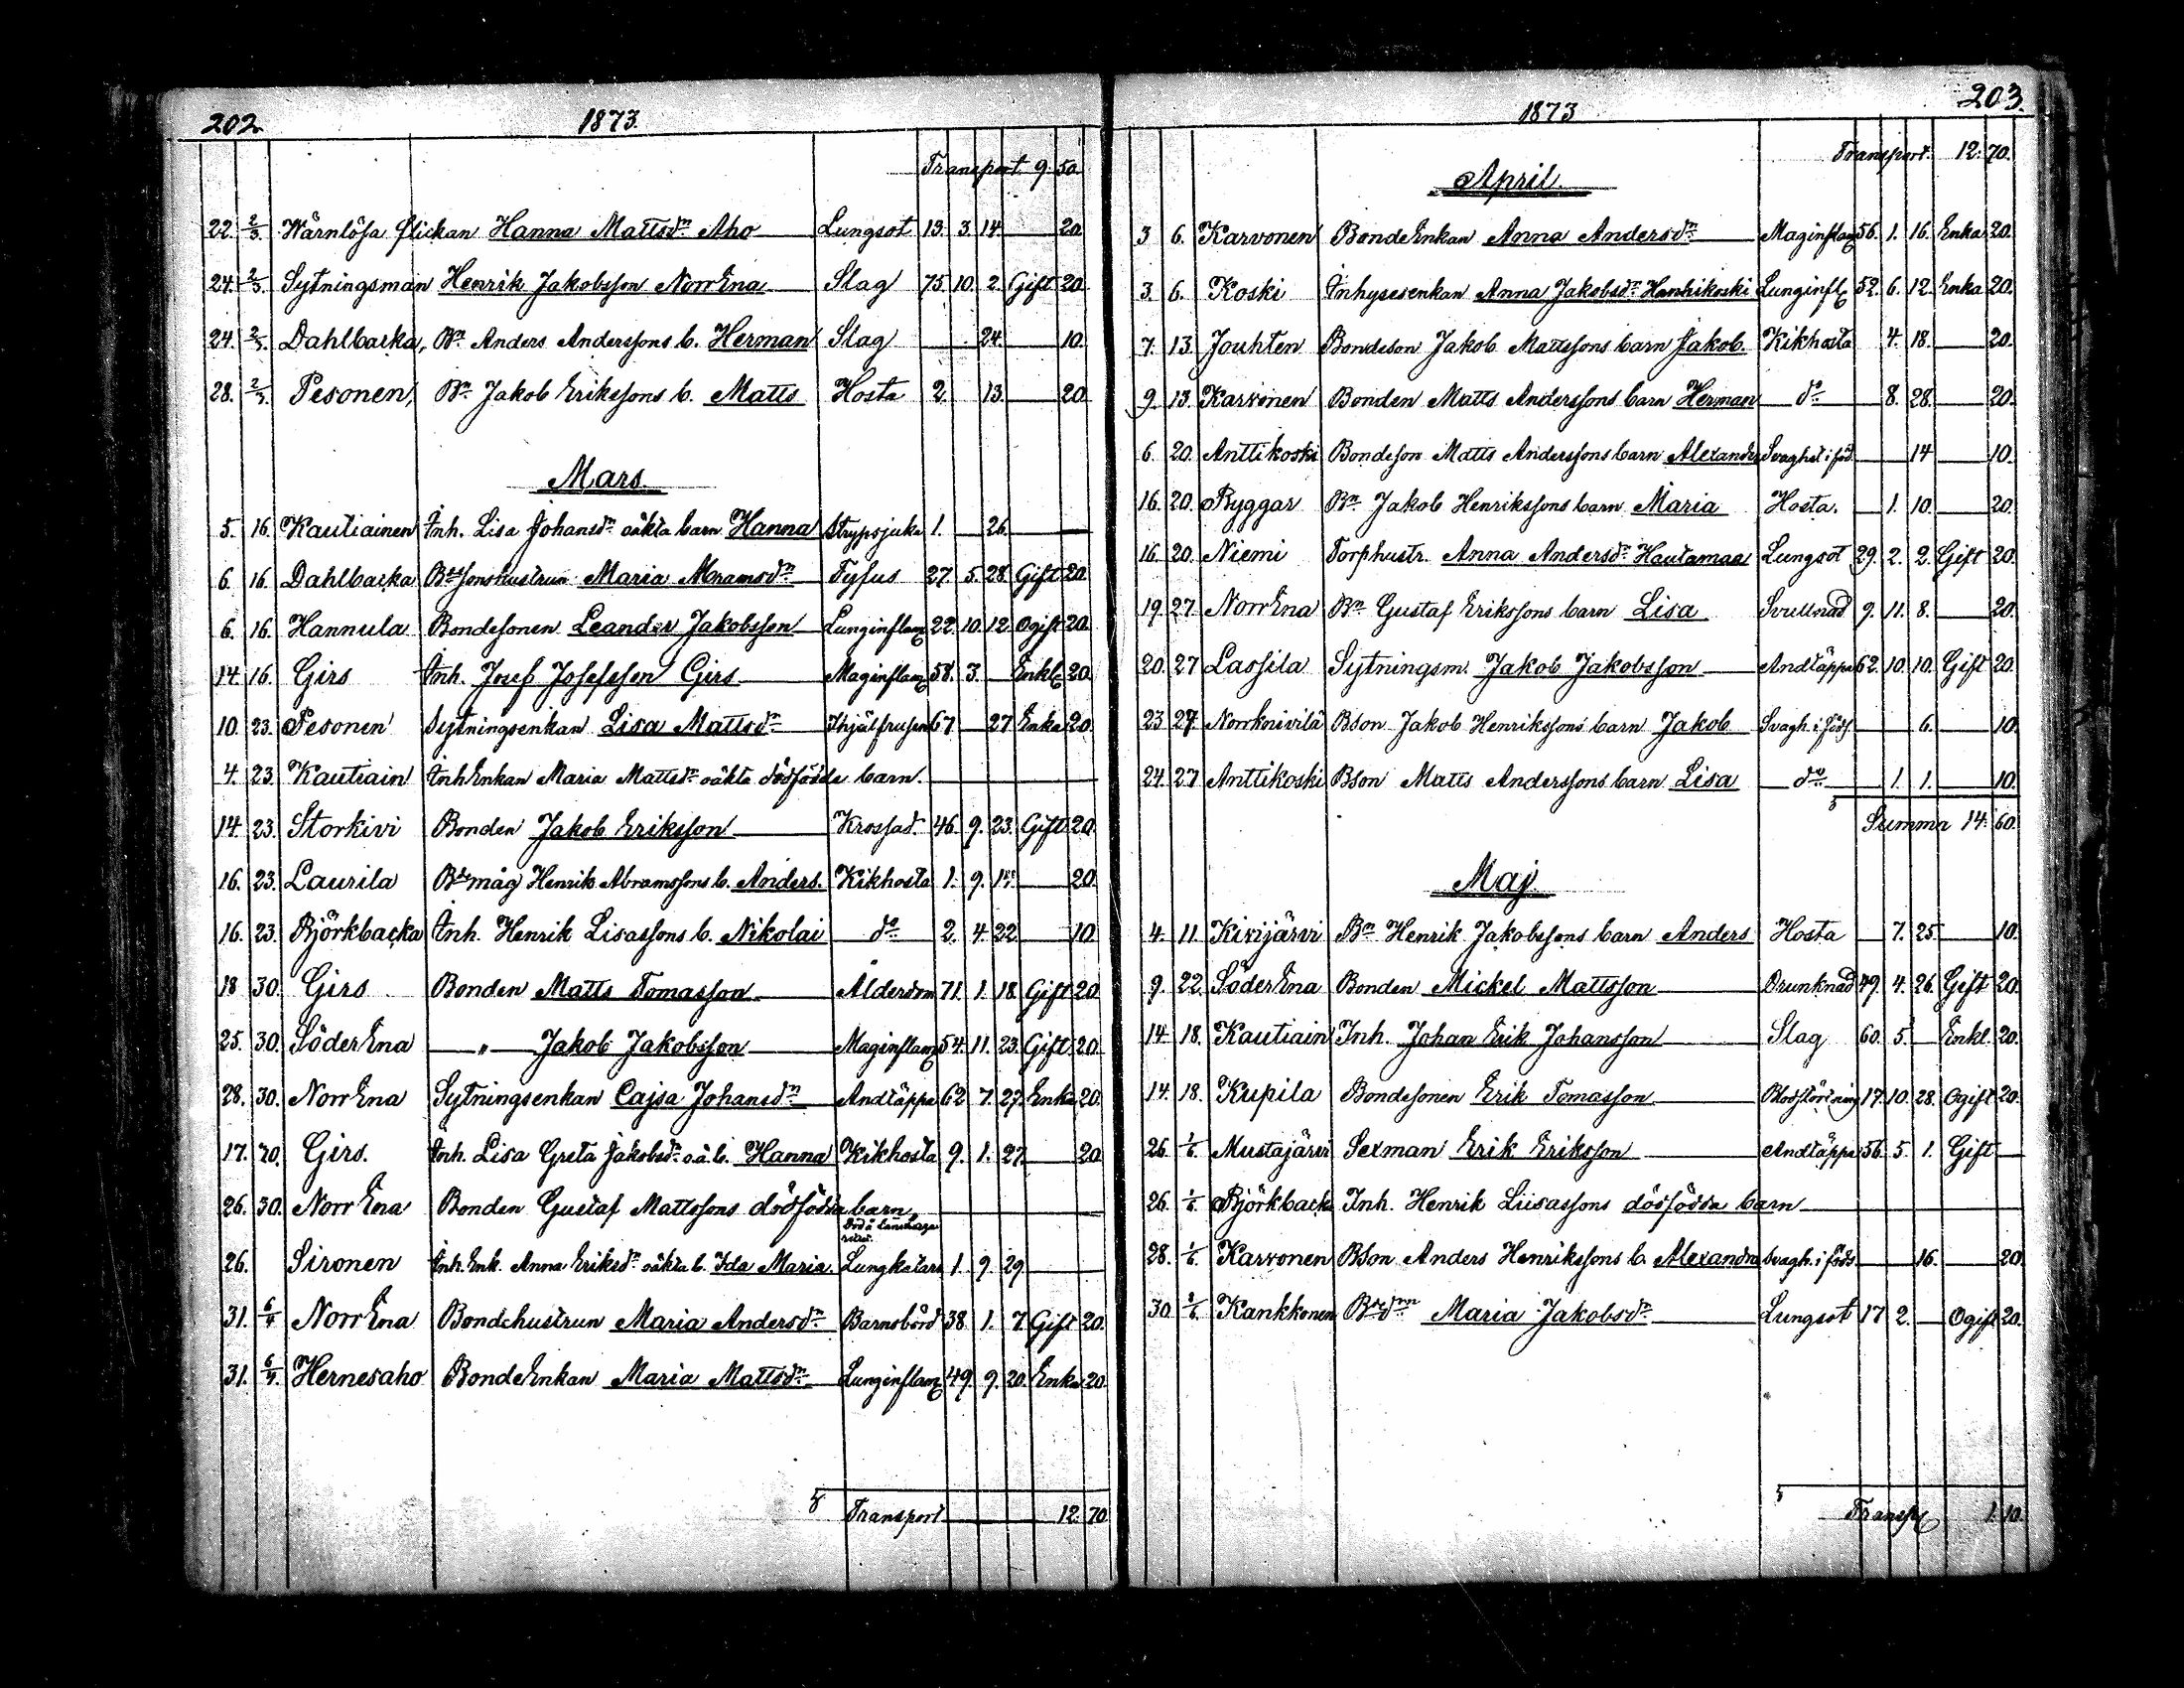 202
1873.
Transport 9. 50.
22. 2/3. Wärnlösa flickan Hanna Mattsdr Aho Lungsot 13. 3. 14. 20.
24. 2/3. Sytningsman Henrik Jakobsson NorrEna Slag 75. 10. 2. Gift 20.
24. 2/3. Dahlbacka, Bn Anders Anderssons b. Herman Slag 24. 10.
28. 2/3. Pesonen, Bn Jakob Erikssons b. Matts Hosta 2. 13. 20.
Mars.
5. 16. Kautiainen Inh. Lisa Johansdr oäkta barn Hanna Strypsjuka 1. 26.
6. 16. Dahlbacka Bdesonshustrun Maria Abramsdr Tyfus 27. 5. 28. Gift 20.
6. 16. Hannula Bondesonen Leander Jakobsson Lunginflam 22. 10. 12. Ogift 20.
14. 16. Girs Inh. Josef Josefsson Girs Maginflam 58. 3. Enkl. 20.
10. 23. Pesonen Sytningsenkan Lisa Mattsdr Ihjälfrusen 67. 27. Enka 20.
4. 23. Kautiain Inh Enkan Maria Mattsdr oäkta dödfödda barn.
14. 23. Storkivi Bonden Jakob Eriksson Krossad. 46. 9. 23. Gift 20.
16. 23. Laurila Bdemåg Henrik Abramssons b. Anders. Kikhosta 1. 9. 20.
16. 23. Björkbacka Inh. Henrik Lisassons b. Nikolai do 2. 4. 22. 10.
18. 30. Girs Bonden Matts Tomasson Ålderdom 71. 1. 18. Gift 20.
25. 30. SöderEna " Jakob Jakobsson Maginflam 54. 11. 23. Gift 20.
28. 30. NorrEna Sytningsenkan Cajsa Johansdr Andtäppa 62. 7. 27. Enka 20.
17. 30. Girs. Inh. Lisa Greta Jakobsdr o.ä.b. Hanna Kikhosta 9. 1. 27. 20.
26. 30. NorrEna Bonden Gustaf Mattssons dödfödda barn
26. Sironen Inh. Enk. Anna Eriksdr oäkta b. Ida Maria. Lungkatarr 1. 9. 29.
31. 6/4. NorrEna Bondehustrun Maria Andersdr Barnsbörd 38. 1. 7. Gift 20.
31. 6/4. Hernesaho BondeEnkan Maria Mattsdr Lunginflam 49. 9. 20. Enka 20.
Transport 12. 70.
203.
1873
Transport. 12. 70.
April.
3. 6. Karvonen BondeEnkan Anna Andersdr Maginflam 56. 1. 16. Enka 20.
3. 6. Koski Inhysesenkan Anna Jakobsdr Hanhikoski Lunginfl 52. 6. 12. Enka 20.
7. 13. Jouhten Bondeson Jakob Mattssons barn Jakob. Kikhosta 4. 18. 20.
9. 13. Karvonen Bonden Matts Anderssons barn Herman do 8. 28. 20.
6. 20. Anttikoski Bondeson Matts Anderssons barn Alexander Svaghet i föd. 14. 10.
16. 20. Byggar Bn Jakob Henrikssons barn Maria Hosta. 1. 10. 20.
16. 20. Niemi Torphustr. Anna Andersdr Hautamaa Lungsot 29. 2. 2. Gift 20.
19. 27. NorrEna Bn Gustaf Erikssons barn Lisa Svullnad 9. 11. 8. 20.
20. 27. Lassila Sytningsm. Jakob Jakobsson Andtäppa 62. 10. 10. Gift 20.
23. 27. Norrkniivilä BSon Jakob Henrikssons barn Jakob Svagh. i föds 6. 10.
24. 27. Anttikoski BSon Matts Anderssons barn Lisa do 1. 1. 10.
Summa 14. 60.
Maj.
4. 11. Kivijärvi Bn Henrik Jakobssons barn Anders Hosta 7. 25. 10.
9. 22. SöderEna Bonden Mickel Mattsson Drunknad 49. 4. 26. Gift 20.
14. 18. Kautiain Inh. Johan Erik Johansson Slag 60. 5. Enkl. 20.
14. 18. Kupila Bondesonen Erik Tomasson Blodstörtning 17. 10. 28. Ogift 20.
26. 1/6. Mustajärvi Sexman Erik Eriksson Andtäppa 56. 5. 1. Gift
26. 1/6. Björkback Inh. Henrik Liisassons dödfödda barn
28. 1/6. Karvonen BSon Anders Henrikssons b. Alexandra Svagh. i föds 16. 20.
30. 2/6. Kankkonen Maria Jakobsdr Lungsot 17. 2. Ogift 20.
Transp 1. 10.